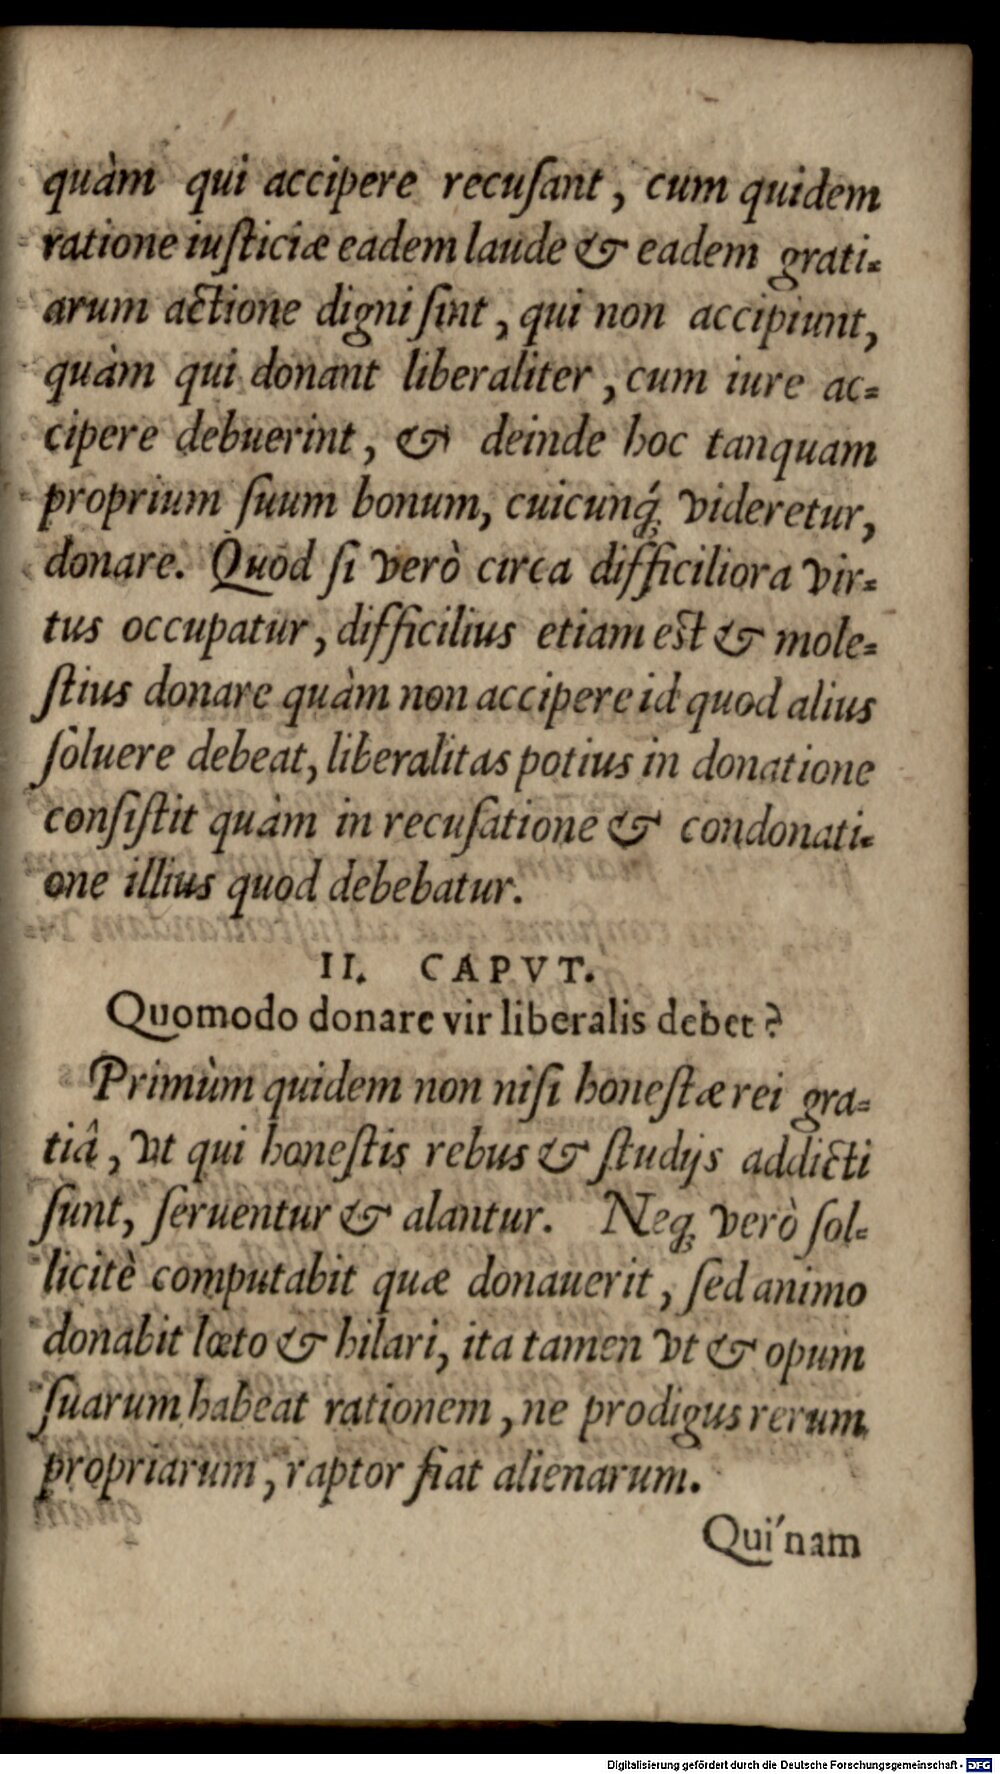 quàm qui accipere recuſant, cum quidem
ratione iuſticiæ eadem laude & eadem grati-
arum actione digni ſint, qui non accipiunt,
quàm qui donant liberaliter, cum iure ac-
cipere debuerint, & deinde hoc tanquam
proprium ſuum bonum, cuicunq́; videretur,
donare. Quod ſi verò circa difficiliora vir-
tus occupatur, difficilius etiam eſt & mole-
ſtius donare quàm non accipere id quod alius
ſoluere debeat, liberalitas potius in donatione
conſiſtit quàm in recuſatione & condonati-
one illius quod debebatur.
II. CAPVT.
Quomodo donare vir liberalis debet?
Primùm quidem non niſi honeſtæ rei gra-
tiâ, vt qui honeſtis rebus & ſtudijs addicti
ſunt, ſeruentur & alantur. Neq; verò ſol-
licitè computabit quæ donauerit, ſed animo
donabit lœto & hilari, ita tamen vt & opum
ſuarum habeat rationem, ne prodigus rerum
propriarum, raptor fiat alienarum.
Qui´nam
Digitalisierung gefördert durch die Deutsche Forschungsgemeinschaft - DFG